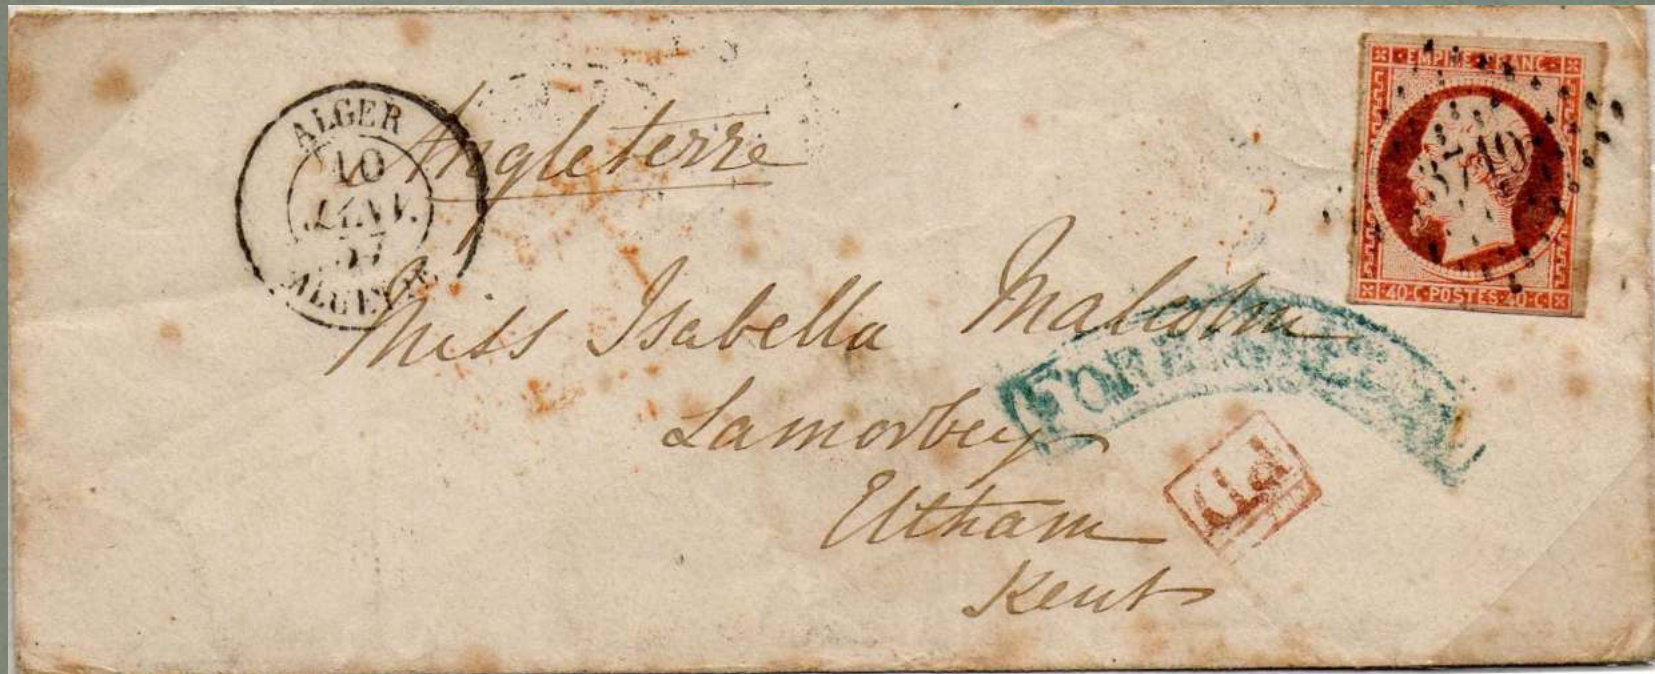 ALGER
10
JANV.
57
ALGERIE
Angleterre
EMPIRE·FRANC·
3710
40·C·POSTES·40·C
Miss Isabella Malcolm
Lamorbey
Eltham
Kent
PD